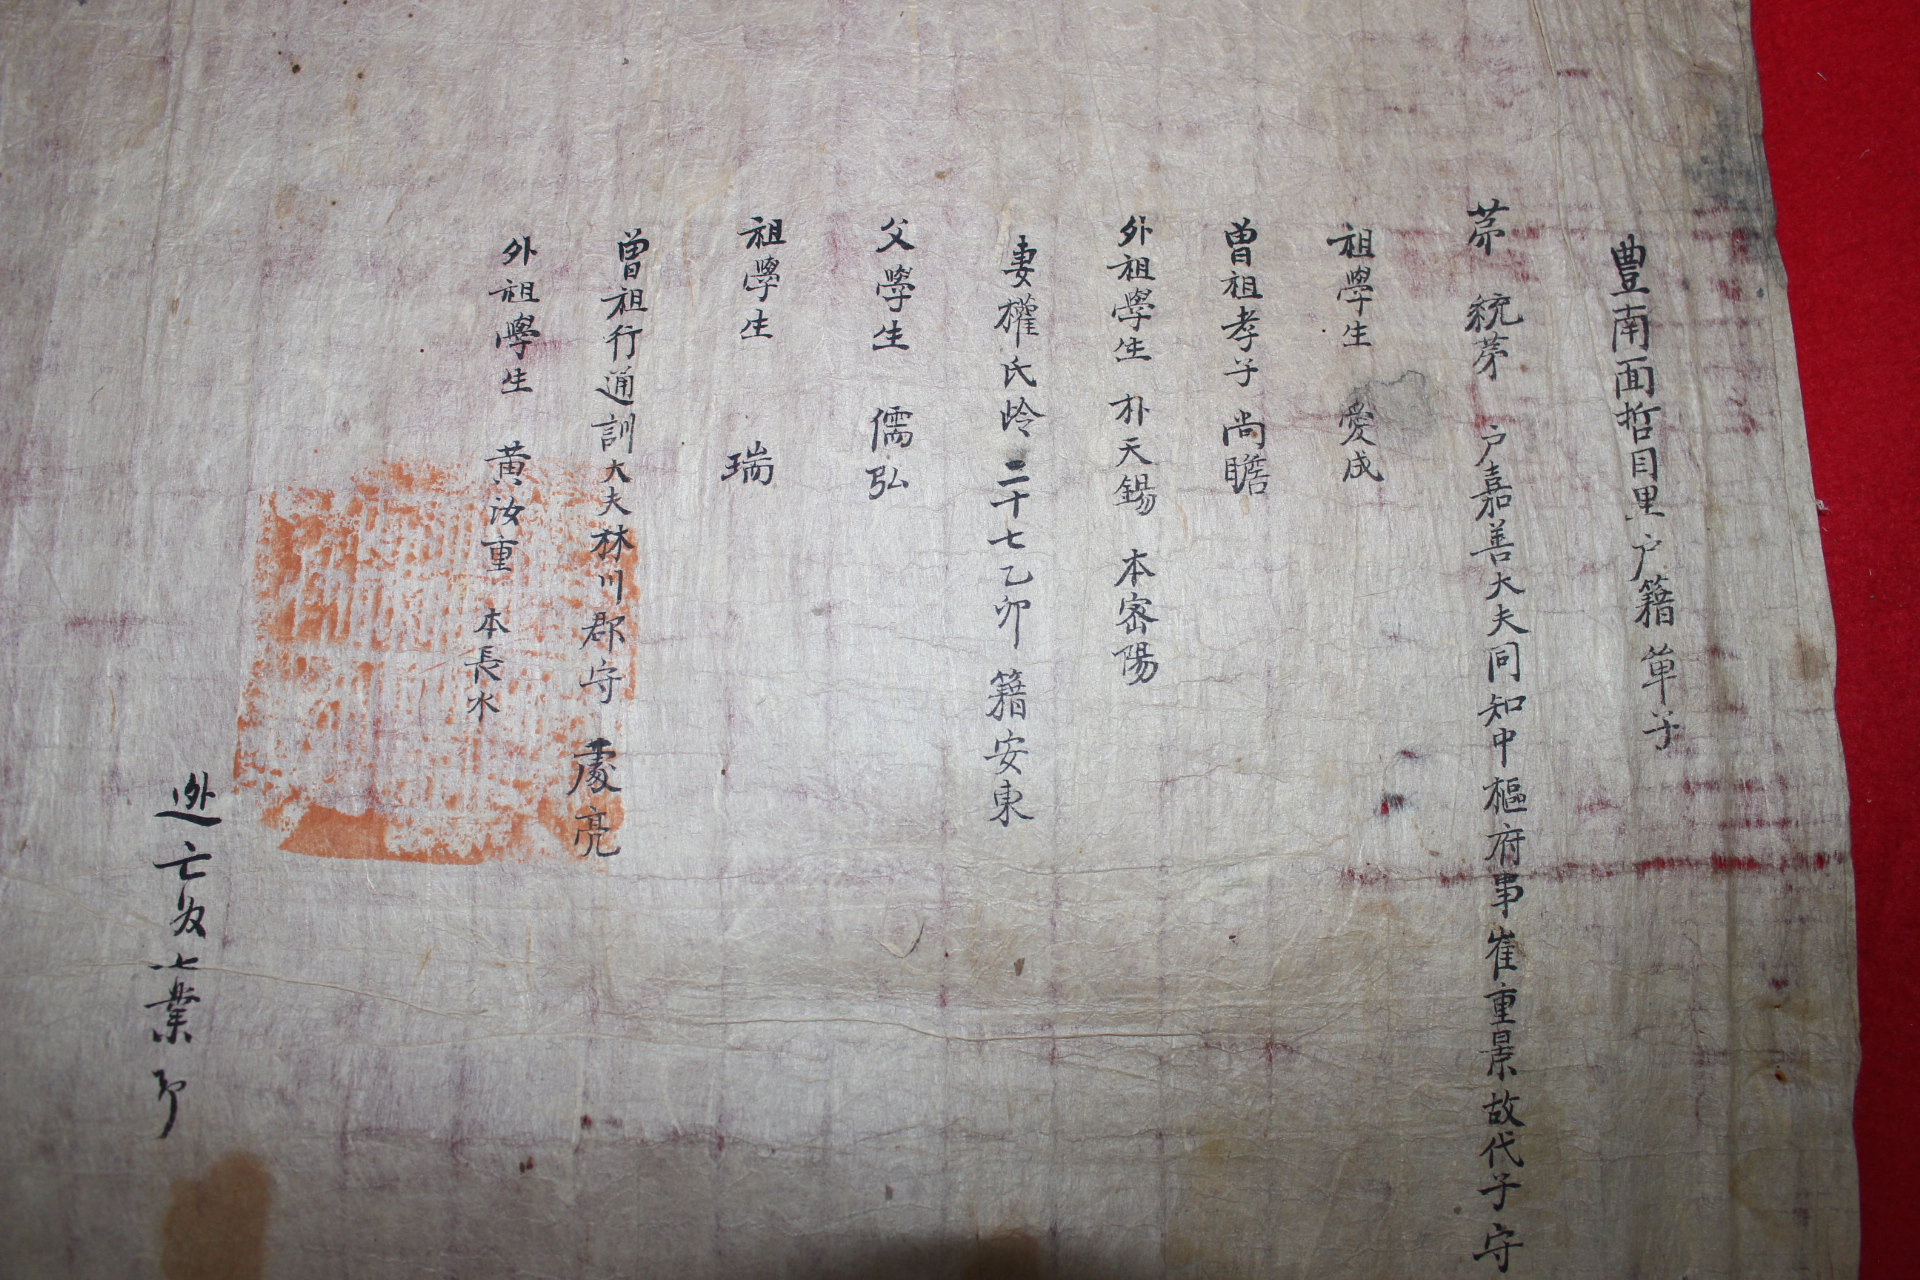 豊南面哲目里户籍單子
苐 統苐 户嘉善大夫同知中樞府事崔重景故代子守
祖學生 愛成
曾祖孝子 尚瞻
外祖學生 朴天錫 本密陽
妻權氏岭二十七乙卯 籍安東
父學生 儒弘
祖學生 瑞
曾祖行通訓大夫林川郡守 處亮
外祖學生 黃汝重 本長水